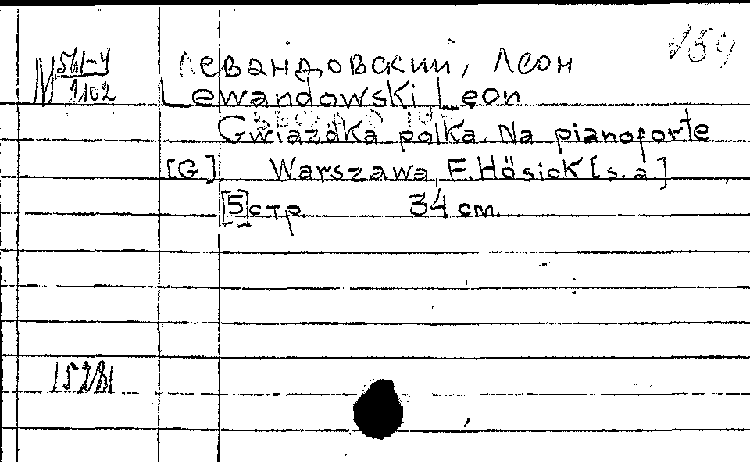 Левандовский, Леон
Lewandowski Leon
Gwiazdka polka. Na pianoforte
[G] Warszawa, F. Hösick [s.a]
[5] стр. 34 cm.